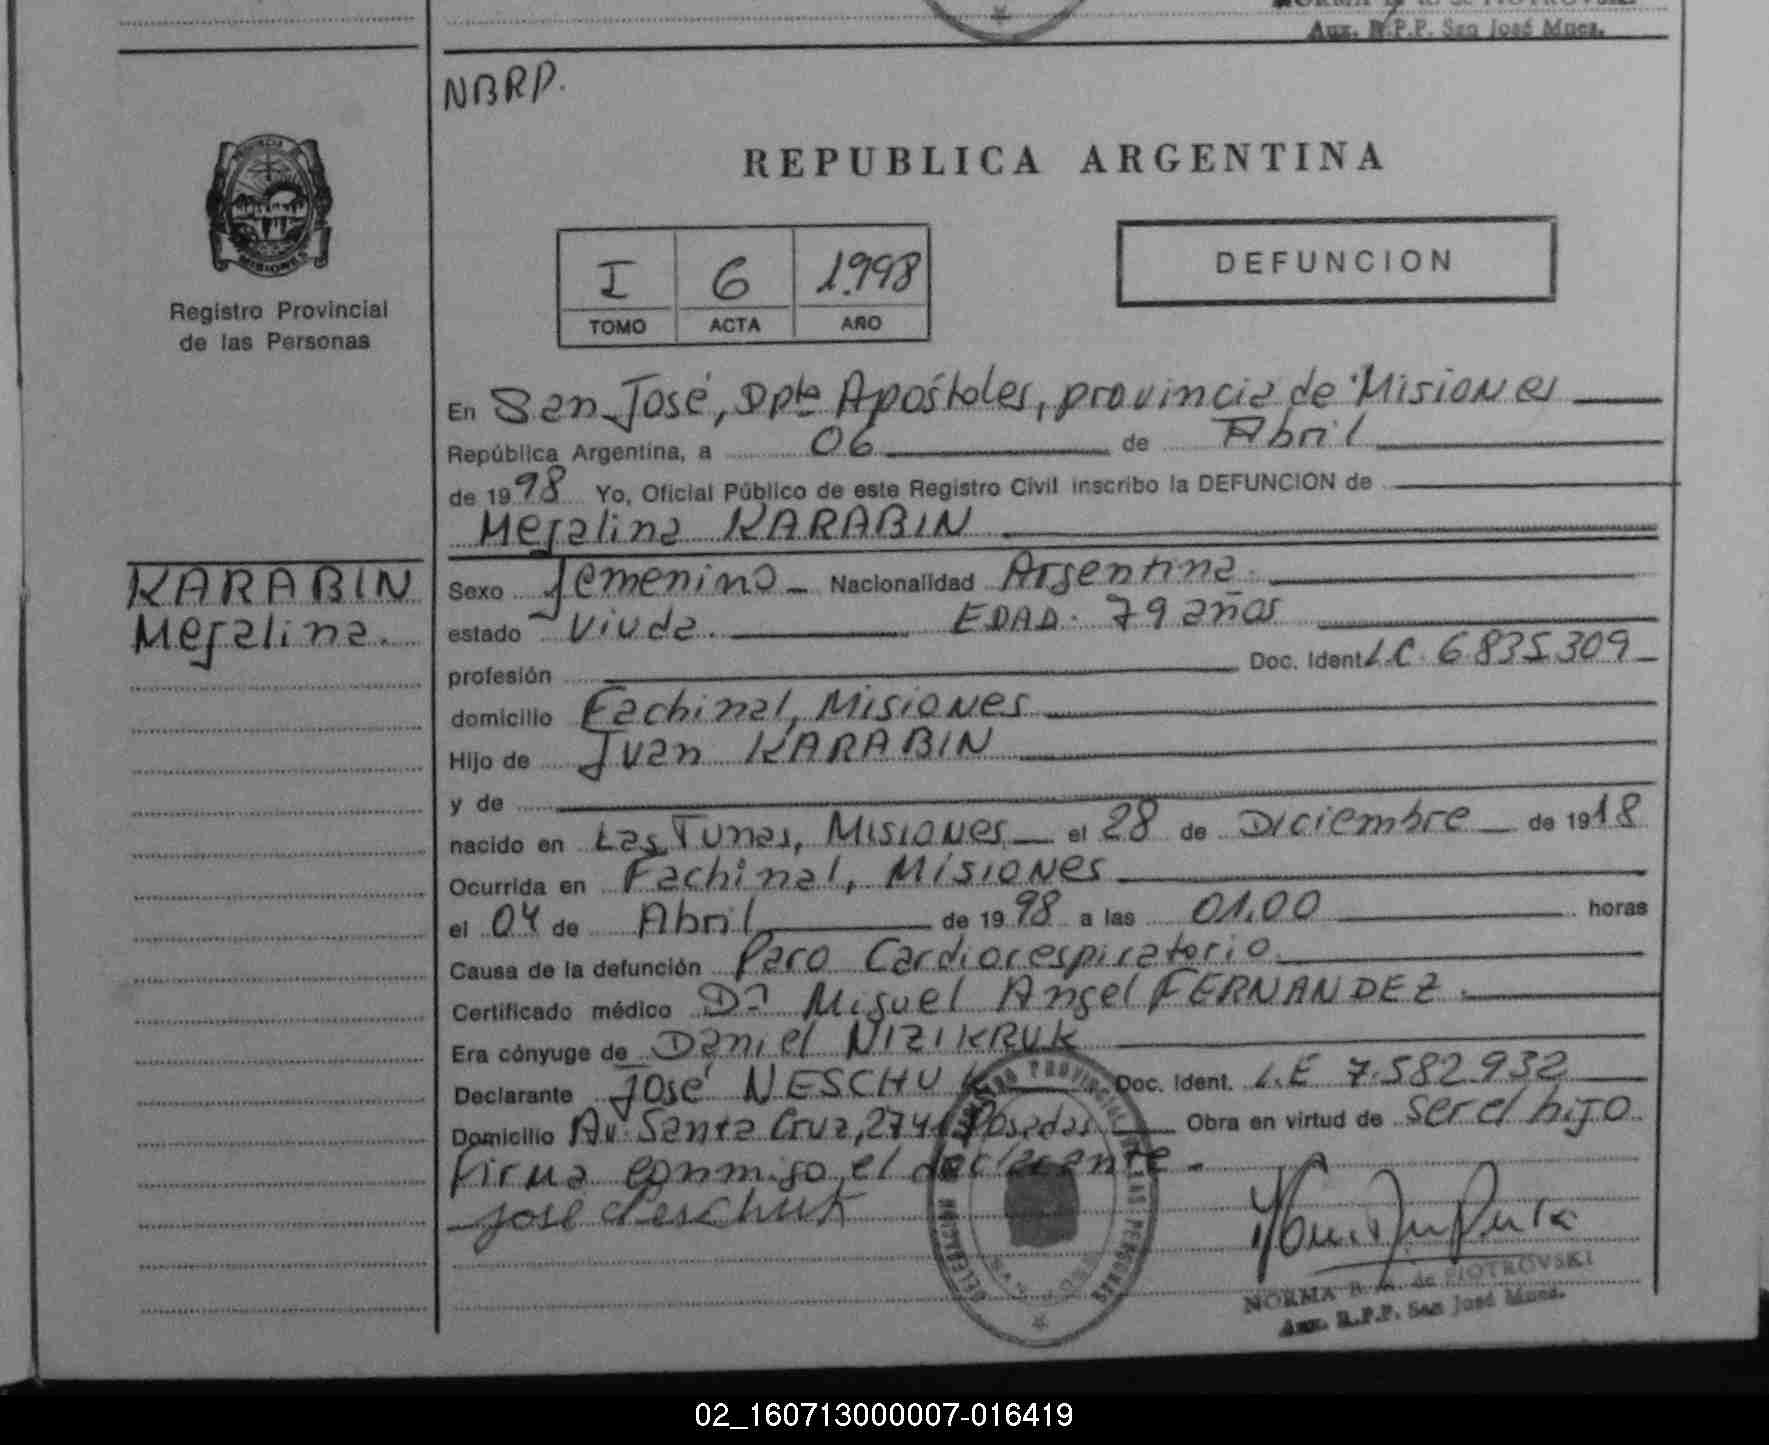 Aux. R.P.P. San José Mnes.
NBRP.
REPUBLICA ARGENTINA
PROVINCIA DE
MISIONES
Registro Provincial
de las Personas
I 6 1.998
TOMO ACTA AÑO
DEFUNCION
En San José, Dpto Apóstoles, provincia de Misiones
República Argentina, a 06 de Abril
de 1998 Yo, Oficial Público de este Registro Civil inscribo la DEFUNCION de
Megalina KARABIN
KARABIN
Megalina.
Sexo femenino Nacionalidad Argentina.
estado Viuda. EDAD. 79 años
profesión Doc. Ident L.C. 6.835.309
domicilio Fachinal, Misiones
Hijo de Juan KARABIN
y de
nacido en Las Tunas, Misiones el 28 de Diciembre de 1918
Ocurrida en Fachinal, Misiones
el 04 de Abril de 1998 a las 01.00 horas
Causa de la defunción Paro Cardiorespiratorio
Certificado médico Dr Miguel Angel FERNANDEZ.
Era cónyuge de Daniel NIZIKRUK
Declarante José NESCHUK Doc. Ident. L.E 7.582.932
Domicilio Av. Santa Cruz, 274 Posadas Obra en virtud de ser el hijo
Firma conmigo el declarante.
José Neschuk
NORMA B. de PIOTROVSKI
Aux. R.P.P. San José Mnes.
02_160713000007-016419